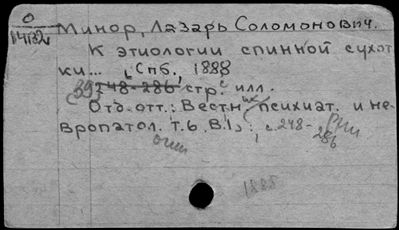 О
Минор, Лазарь Соломонович.
К этиологии спинной сухот
ки... Спб., 1888
39 248-286 стр. илл.
Отд. отт.: Вестн. психиат. и не-
вропатол. т.6, В.1; с.248-
286
1888